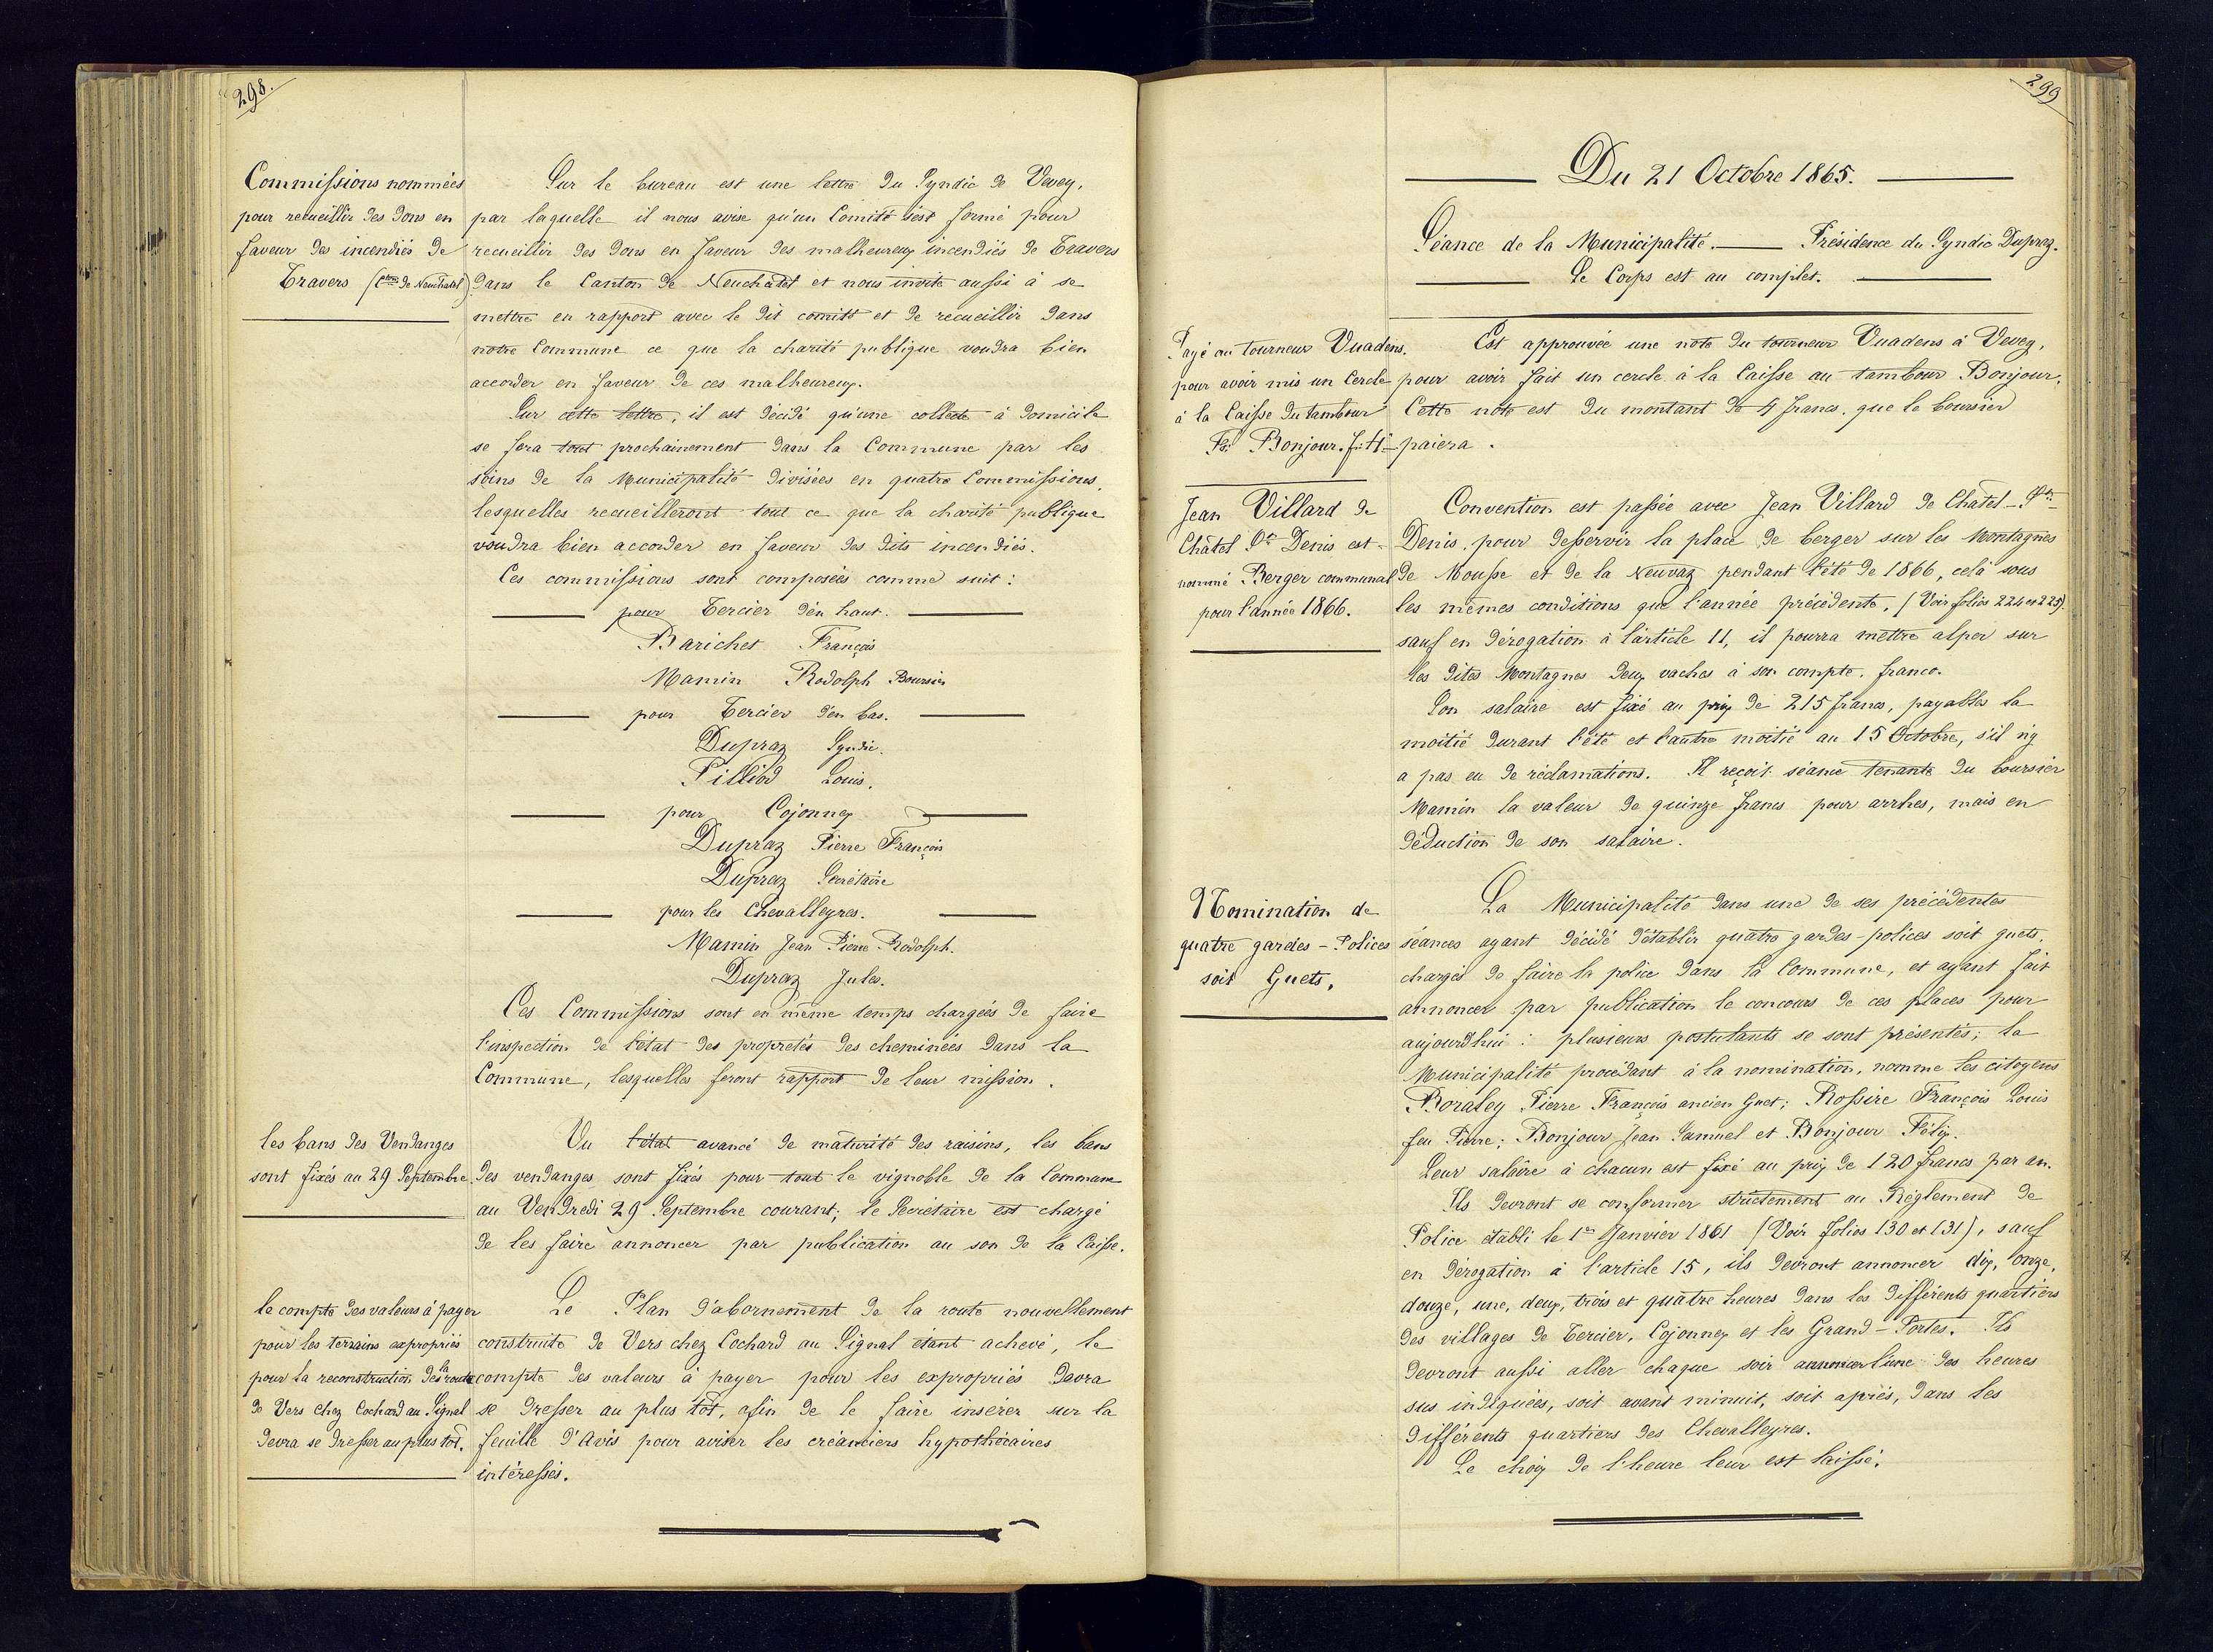 298.
Commissions nommées
pour recueillir des dons en
faveur des incendiés de
Travers (Cton de Neuchâtel)
Sur le bureau est une lettre du Syndic de Vevey,
par laquelle il nous avise qu'un Comité s'est formé pour
recueillir des dons en faveur des malheureux incendiés de Travers
dans le Canton de Neuchâtel et nous invite aussi à se
mettre en rapport avec le dit comité et de recueillir dans
notre Commune ce que la charité publique voudra bien
accorder en faveur de ces malheureux.
Sur cette lettre, il est décidé qu'une collecte à domicile
se fera tout prochainement dans la Commune par les
soins de la Municipalité divisées en quatre Commissions,
lesquelles recueilleront tout ce que la charité publique
voudra bien accorder en faveur des dits incendiés.
Ces commissions sont composées comme suit :
pour Tercier d'en haut.
Barichet François
Mamin Rodolph Boursier
pour Tercier d'en bas.
Dupraz Syndic.
Pilliod Louis.
pour Cojonnex
Dupraz Pierre François
Dupraz Secrétaire
pour les Chevalleyres.
Mamin Jean Pierre Rodolph.
Dupraz Jules.
Ces Commissions sont en même temps chargées de faire
l'inspection de l'état des propretés des cheminées dans la
Commune, lesquelles feront rapport de leur mission.
les bans des Vendanges
sont fixés au 29 Septembre.
Vu l'état avancé de maturité des raisins, les bans
des vendanges sont fixés pour tout le vignoble de la Commune
au Vendredi 29 Septembre courant; le Secrétaire est chargé
de les faire annoncer par publication au son de la Caisse.
le compte des valeurs à payer
pour les terrains expropriés
pour la reconstruction de la route
de Vers chez Cochard au Signal
devra se dresser au plus tôt.
Le Plan d'abornement de la route nouvellement
construite de Vers chez Cochard au Signal étant achevé, le
compte des valeurs à payer pour les expropriés devra
se dresser au plus tôt, afin de le faire insérer sur la
feuille d'Avis pour aviser les créanciers hypothécaires
intéressés.
299
Du 21 Octobre 1865.
Séance de la Municipalité. Présidence du Syndic Dupraz.
Le Corps est au complet.
Payé au tourneur Vuadens.
pour avoir mis un Cercle
à la Caisse du tambour
Bonjour. f: 4.
Est approuvée une note du tourneur Vuadens à Vevey,
pour avoir fait un cercle à la Caisse au tambour Bonjour.
Cette note est du montant de 4 francs, que le boursier
paiera.
Jean Villard de
Châtel St Denis est
nommé Berger communal
pour l'année 1866.
Convention est passée avec Jean Villard de Châtel-St-
Denis, pour desservir la place de berger sur les Montagnes
de Mousse et de la Neuvaz pendant l'été de 1866, celà sous
les mêmes conditions que l'année précédente, (Voir folios 224 et 225)
sauf en dérogation à l'article 11, il pourra mettre alper sur
les dites Montagnes deux vaches à son compte, franco.
Son salaire est fixé au prix de 215 francs, payables la
moitié durant l'été et l'autre moitié au 15 Octobre, s'il n'y
a pas eu de réclamations. Il reçoit séance tenante du boursier
Mamin la valeur de quinze francs pour arrhes, mais en
déduction de son salaire.
Nomination de
quatre gardes-Polices
soit Guets.
La Municipalité dans une de ses précédentes
séances ayant décidé d'établir quatre gardes-polices soit guets,
chargés de faire la police dans la Commune, et ayant fait
annoncer par publication le concours de ces places pour
aujourd'hui : plusieurs postulants se sont présentés; la
Municipalité procédant à la nomination, nomme les citoyens
Boraley Pierre François ancien Guet; Rossire François Louis
feu Pierre; Bonjour Jean Samuel et Bonjour Félix.
Leur salaire à chacun est fixé au prix de 120 francs par an.
Ils devront se conformer strictement au Règlement de
Police établi le 1er Janvier 1861 (Voir folios 130 et 131), sauf
en dérogation à l'article 15, ils devront annoncer dix, onze,
douze, une, deux, trois et quatre heures dans les différents quartiers
des villages de Tercier, Cojonnex et les Grand-Portes. Ils
devront aussi aller chaque soir annoncer l'une des heures
sus indiquées, soit avant minuit, soit après, dans les
différents quartiers des Chevalleyres.
Le choix de l'heure leur est laissé.